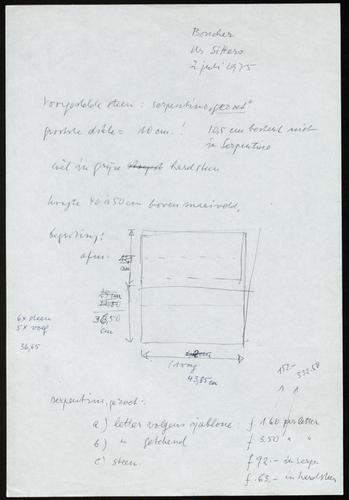 Boucher
2 juli 1975
Voorgestelde steen: serpentine "gezoet"
grootste dikte = 10 cm.! 10,5 cm bestaat niet
in Serpentine
wel in grijze hardsteen
hoogte 40 à 50 cm boven maaiveld.
begroting:
afm.
cm
15 cm
36,50
cm
6x steen
5x voeg
36,65
(1 voeg
43,85 cm
152-
332.50
serpentine, gezoet:
a) letter volgens sjabloon f 1.60 per letter
b) " getekend f 3,50 " "
c) steen f 92.- in serp.
f 63.- in hardsteen